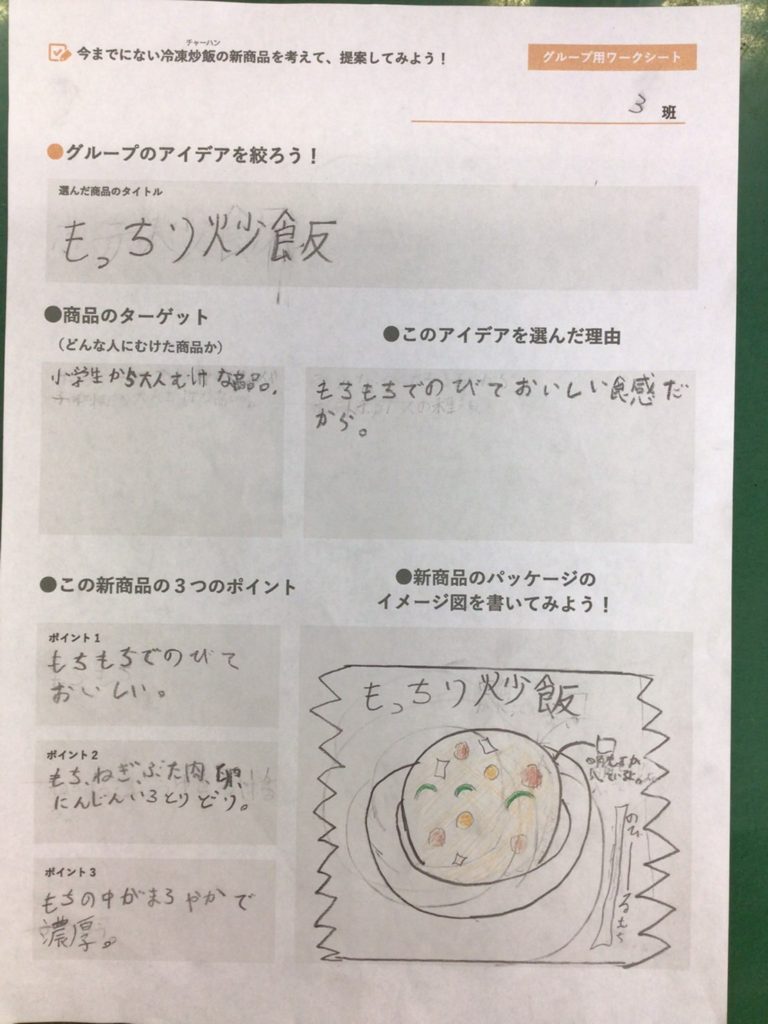 チャーハン
今までにない冷凍炒飯の新商品を考えて、提案してみよう！
グループ用ワークシート
3 班
●グループのアイデアを絞ろう！
選んだ商品のタイトル
もっちり炒飯
●商品のターゲット
（どんな人にむけた商品か）
小学生から大人むけな商品。
●このアイデアを選んだ理由
もちもちでのびておいしい食感だ
から。
●この新商品の３つのポイント
ポイント1
もちもちでのびて
おいしい。
ポイント2
もち、ねぎ、ぶた肉、卵、
にんじんいろとりどり。
ポイント3
もちの中がまろやかで
濃厚。
●新商品のパッケージの
イメージ図を書いてみよう！
もっちり炒飯
のびーるもち